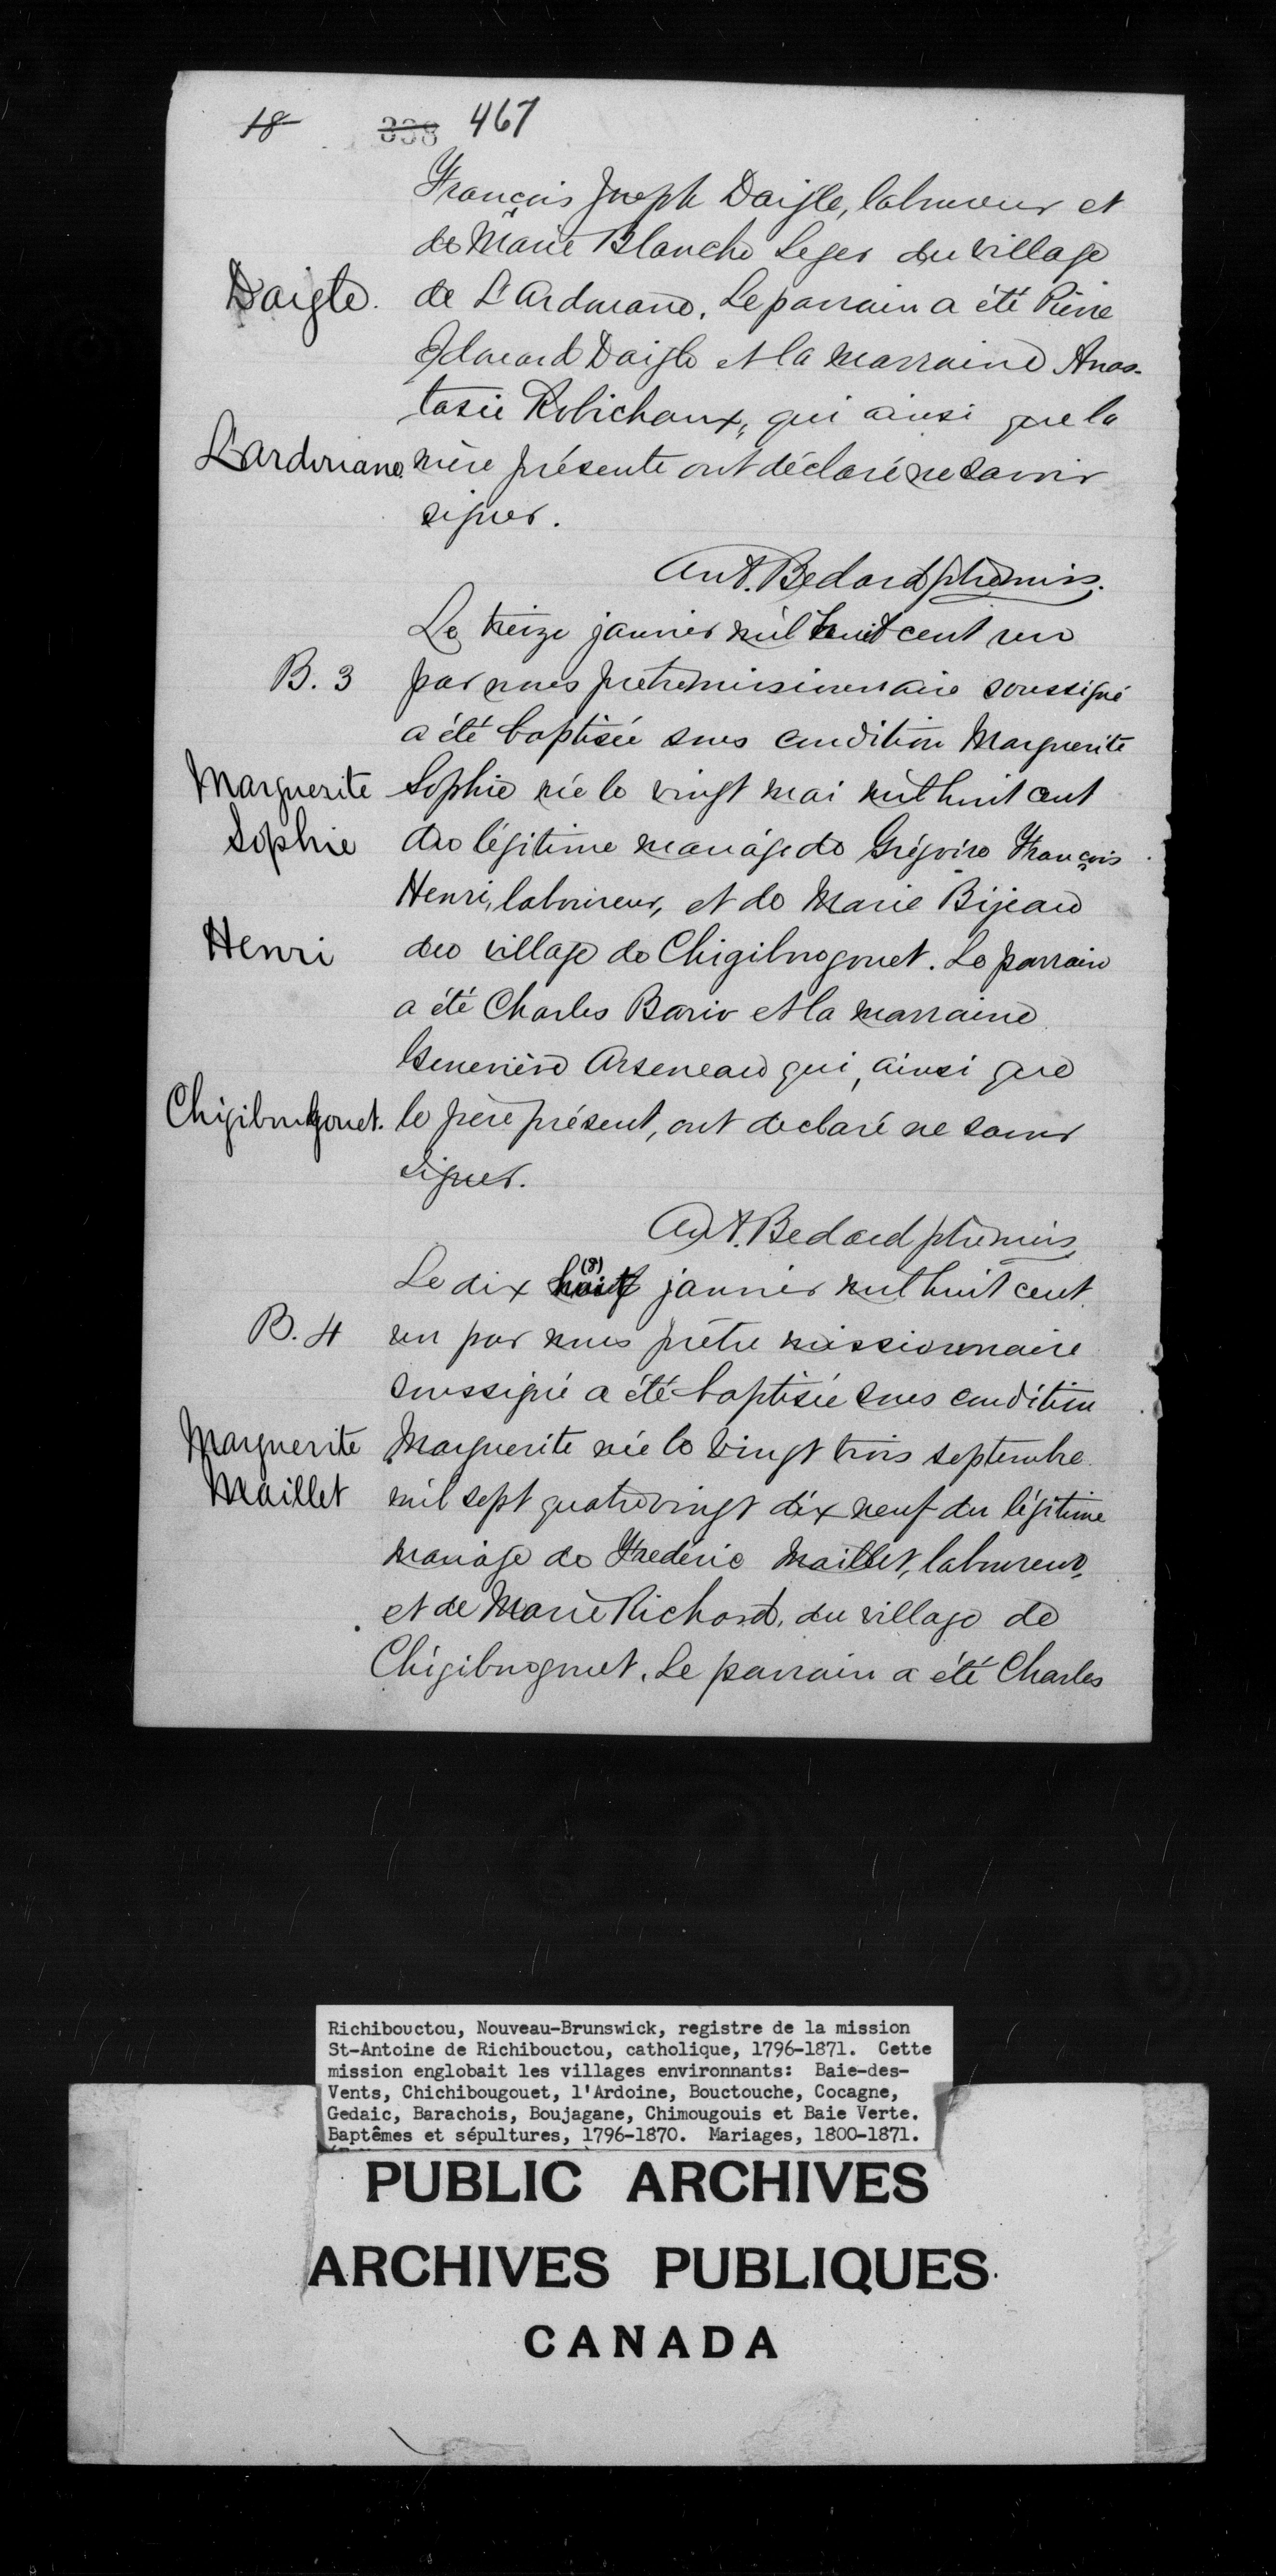 18 338 467
François Joseph Daigle, laboureur et
de Marie Blanche Leger du village
Daigle. de L'Ardouane. Le parrain a été Pierre
Edouard Daigle et la marraine Anas-
tasie Robichaux, qui ainsi que la
L'ardouane. mère présente ont déclaré ne savoir
signer.
Ant. Bedard ptre miss.
Le treize janvier mil huit cent un
B. 3 par nous prêtre missionnaire soussigné
a été baptisée sous condition Marguerite
Marguerite Sophie née le vingt mai mil huit cent
Sophie du légitime mariage de Grégoire François
Henri, laboureur, et de Marie Bijeau
Henri du village de Chigibougouet. Le parrain
a été Charles Bario et la marraine
Geneviève Arseneau qui, ainsi que
Chigibougouet. le père présent, ont declaré ne savoir
signer.
Ant. Bedard ptre miss.
Le dix huit (8) janvier mil huit cent
B. 4 un par nous prêtre missionnaire
soussigné a été baptisée sous condition
Marguerite Marguerite née le vingt trois septembre
Maillet mil sept quatrevingt dix neuf du légitime
mariage de Frederic Maillet, laboureur,
et de Marie Richard, du village de
Chigibougouet. Le parrain a été Charles
Richibouctou, Nouveau-Brunswick, registre de la mission
St-Antoine de Richibouctou, catholique, 1796-1871. Cette
mission englobait les villages environnants: Baie-des-
Vents, Chichibougouet, l'Ardoine, Bouctouche, Cocagne,
Gedaic, Barachois, Boujagane, Chimougouis et Baie Verte.
Baptêmes et sépultures, 1796-1870. Mariages, 1800-1871.
PUBLIC ARCHIVES
ARCHIVES PUBLIQUES
CANADA